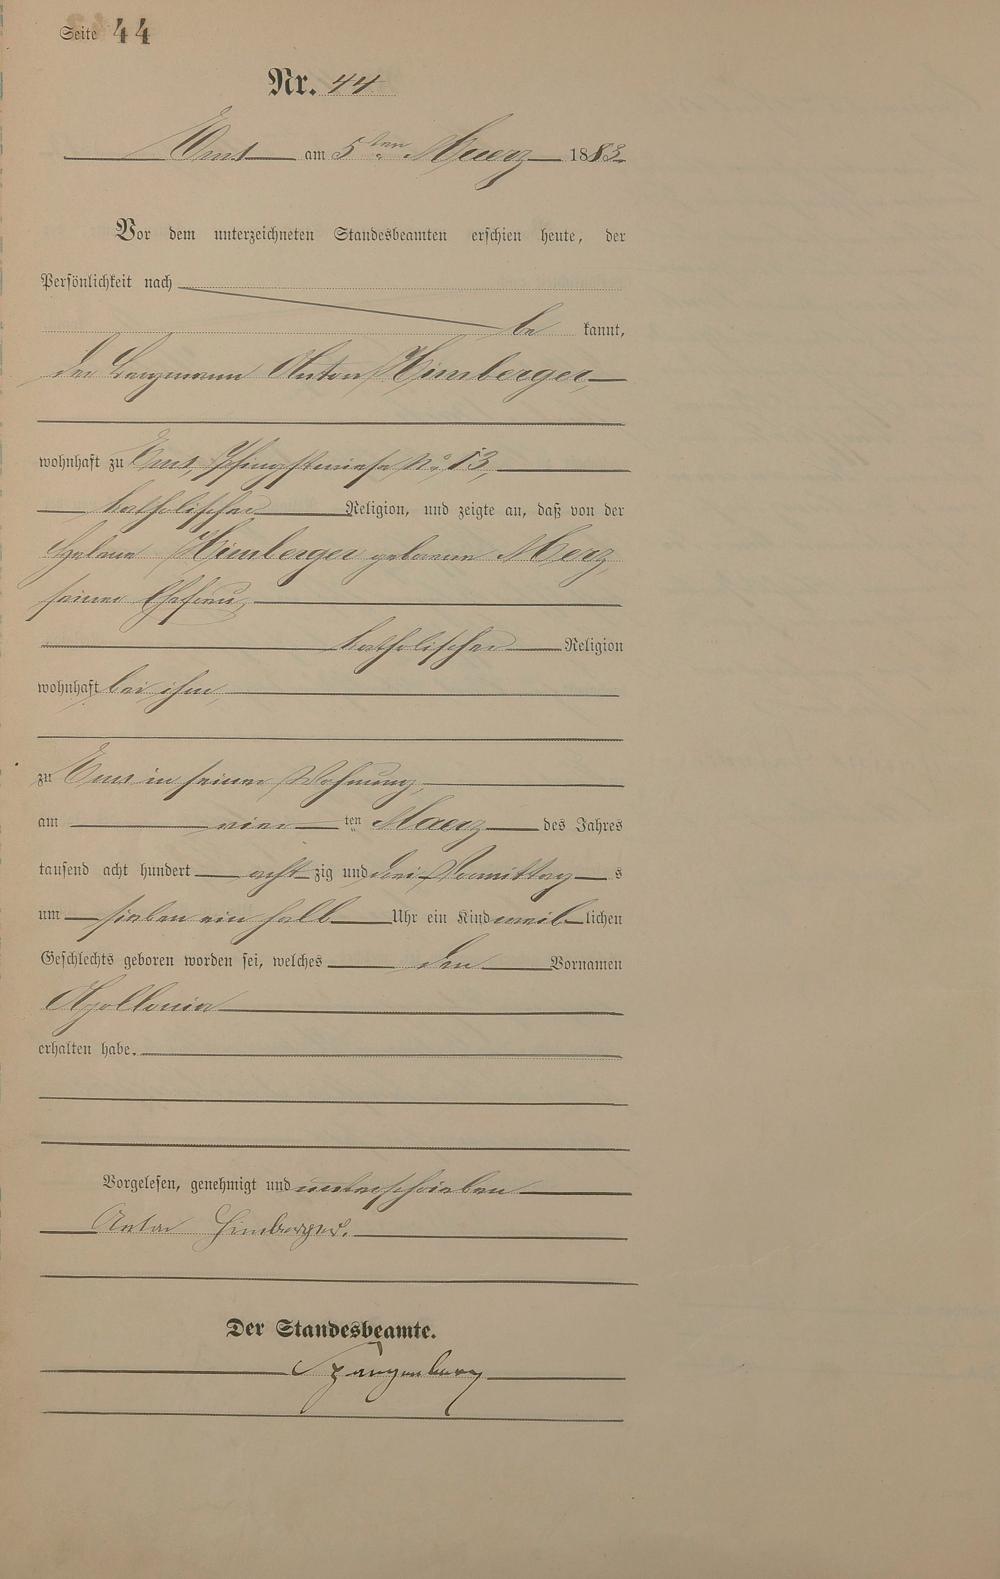 Seite 44
Nr. 44
Ems am 5ten Maerz 1883.
Vor dem unterzeichneten Standesbeamten erschien heute, der
Persönlichkeit nach
be kannt,
der Bergmann Anton Himberger,
wohnhaft zu Ems, Pfingstwiese No 13,
katholischer Religion, und zeigte an, daß von der
Helena Himberger geborenen Merz,
seiner Ehefrau,
katholischer Religion
wohnhaft bei ihm,
zu Ems in seiner Wohnung,
am vier ten Maerz des Jahres
tausend acht hundert acht zig und drei Vormittag s
um sieben ein halb Uhr ein Kind weib lichen
Geschlechts geboren worden sei, welches den Vornamen
Apollonia
erhalten habe.
Vorgelesen, genehmigt und unterschrieben
Anton Himberger.
Der Standesbeamte.
Spangenberg